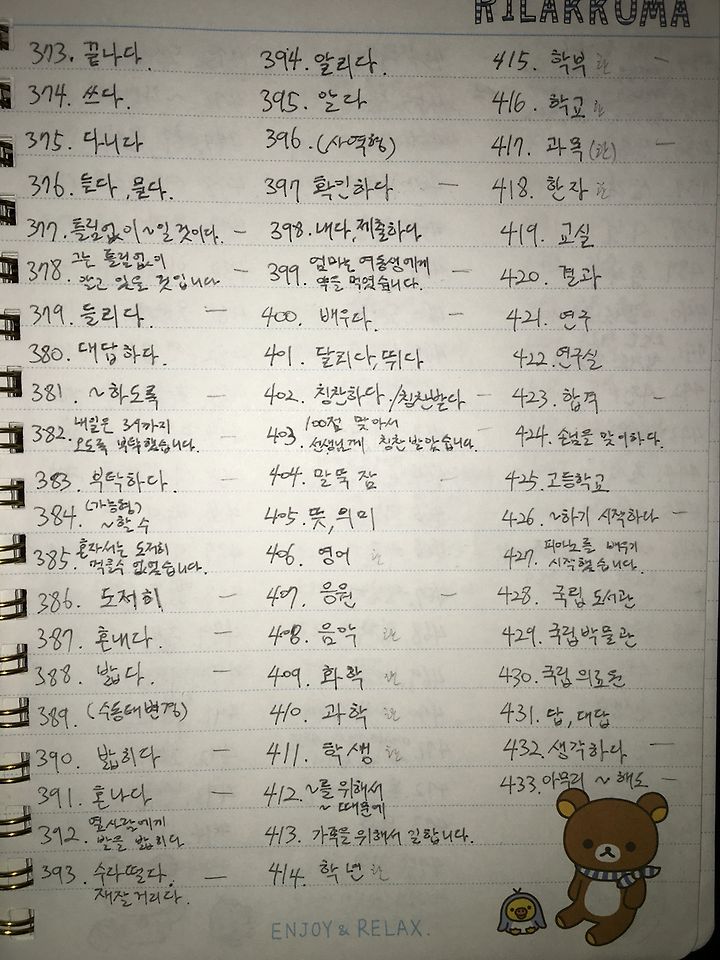 RILAKKUMA
373. 끝나다.
374. 쓰다.
375. 다니다
376. 듣다, 묻다.
377. 틀림없이 ~일 것이다. –
378. 그는 틀림없이
알고 있을 것입니다 –
379. 들리다. –
380. 대답하다.
381. ~하도록 –
382. 내일은 3시까지
오도록 부탁했습니다. –
383. 부탁하다. –
384. (가능형)
~할 수
385. 혼자서는 도저히
먹을수 없었습니다.
386. 도저히 –
387. 혼내다. –
388. 밟다. –
389. (수동태변경)
390. 밟히다 –
391. 혼나다 –
392. 옆사람에게
발을 밟히다
393. 수다떨다. –
재잘거리다.
394. 알리다.
395. 알다
396. (사역형)
397 확인하다 –
398. 내다, 제출하다
399. 엄마는 여동생에게
약을 먹였습니다. –
400. 배우다. –
401. 달리다, 뛰다
402. 칭찬하다./칭찬받다 –
403. 100점 맞아서
선생님께 칭찬받았습니다. –
404. 말뚝 잠
405. 뜻, 의미
406. 영어 한
407. 응원
408. 음악 한
409. 화학 한
410. 과학 한
411. 학생 한
412. ~를 위해서
~ 때문에
413. 가족을 위해서 일합니다.
414. 학년 한
415. 학부 한 –
416. 학교 한
417. 과목 (한) –
418. 한자 한
419. 교실
420. 결과
421. 연구
422. 연구실
423. 합격 –
424. 손님을 맞이하다.
425. 고등학교
426. ~하기 시작하다 –
427. 피아노를 배우기
시작했습니다.
428. 국립 도서관
429. 국립박물관
430. 국립의료원
431. 답, 대답
432. 생각하다 –
433. 아무리 ~ 해도 –
ENJOY & RELAX.